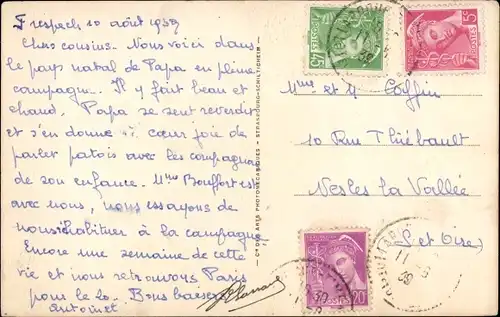 Frespech 10 août 1939
Chers cousins. Nous voici dans
le pays natal de Papa en pleine
campagne. Il y fait beau et
chaud. Papa se sent reverdir
et s'en donne à cœur joie de
parler patois avec les compagnons
de son enfance. Mme Bouffort est
avec nous, nous essayons de
nous réhabituer à la campagne
Encore une semaine de cette
vie et nous retrouvons Paris
pour le 20. Bons baisers
Antoinet
CAP
ARTS PHOTOMÉCANIQUES - STRASBOURG-SCHILTIGHEIM
45
5c
POSTES
20
11
39
Mme et M Coffin
10 Rue Thiébault
Nesles la Vallée
(S. et Oise)